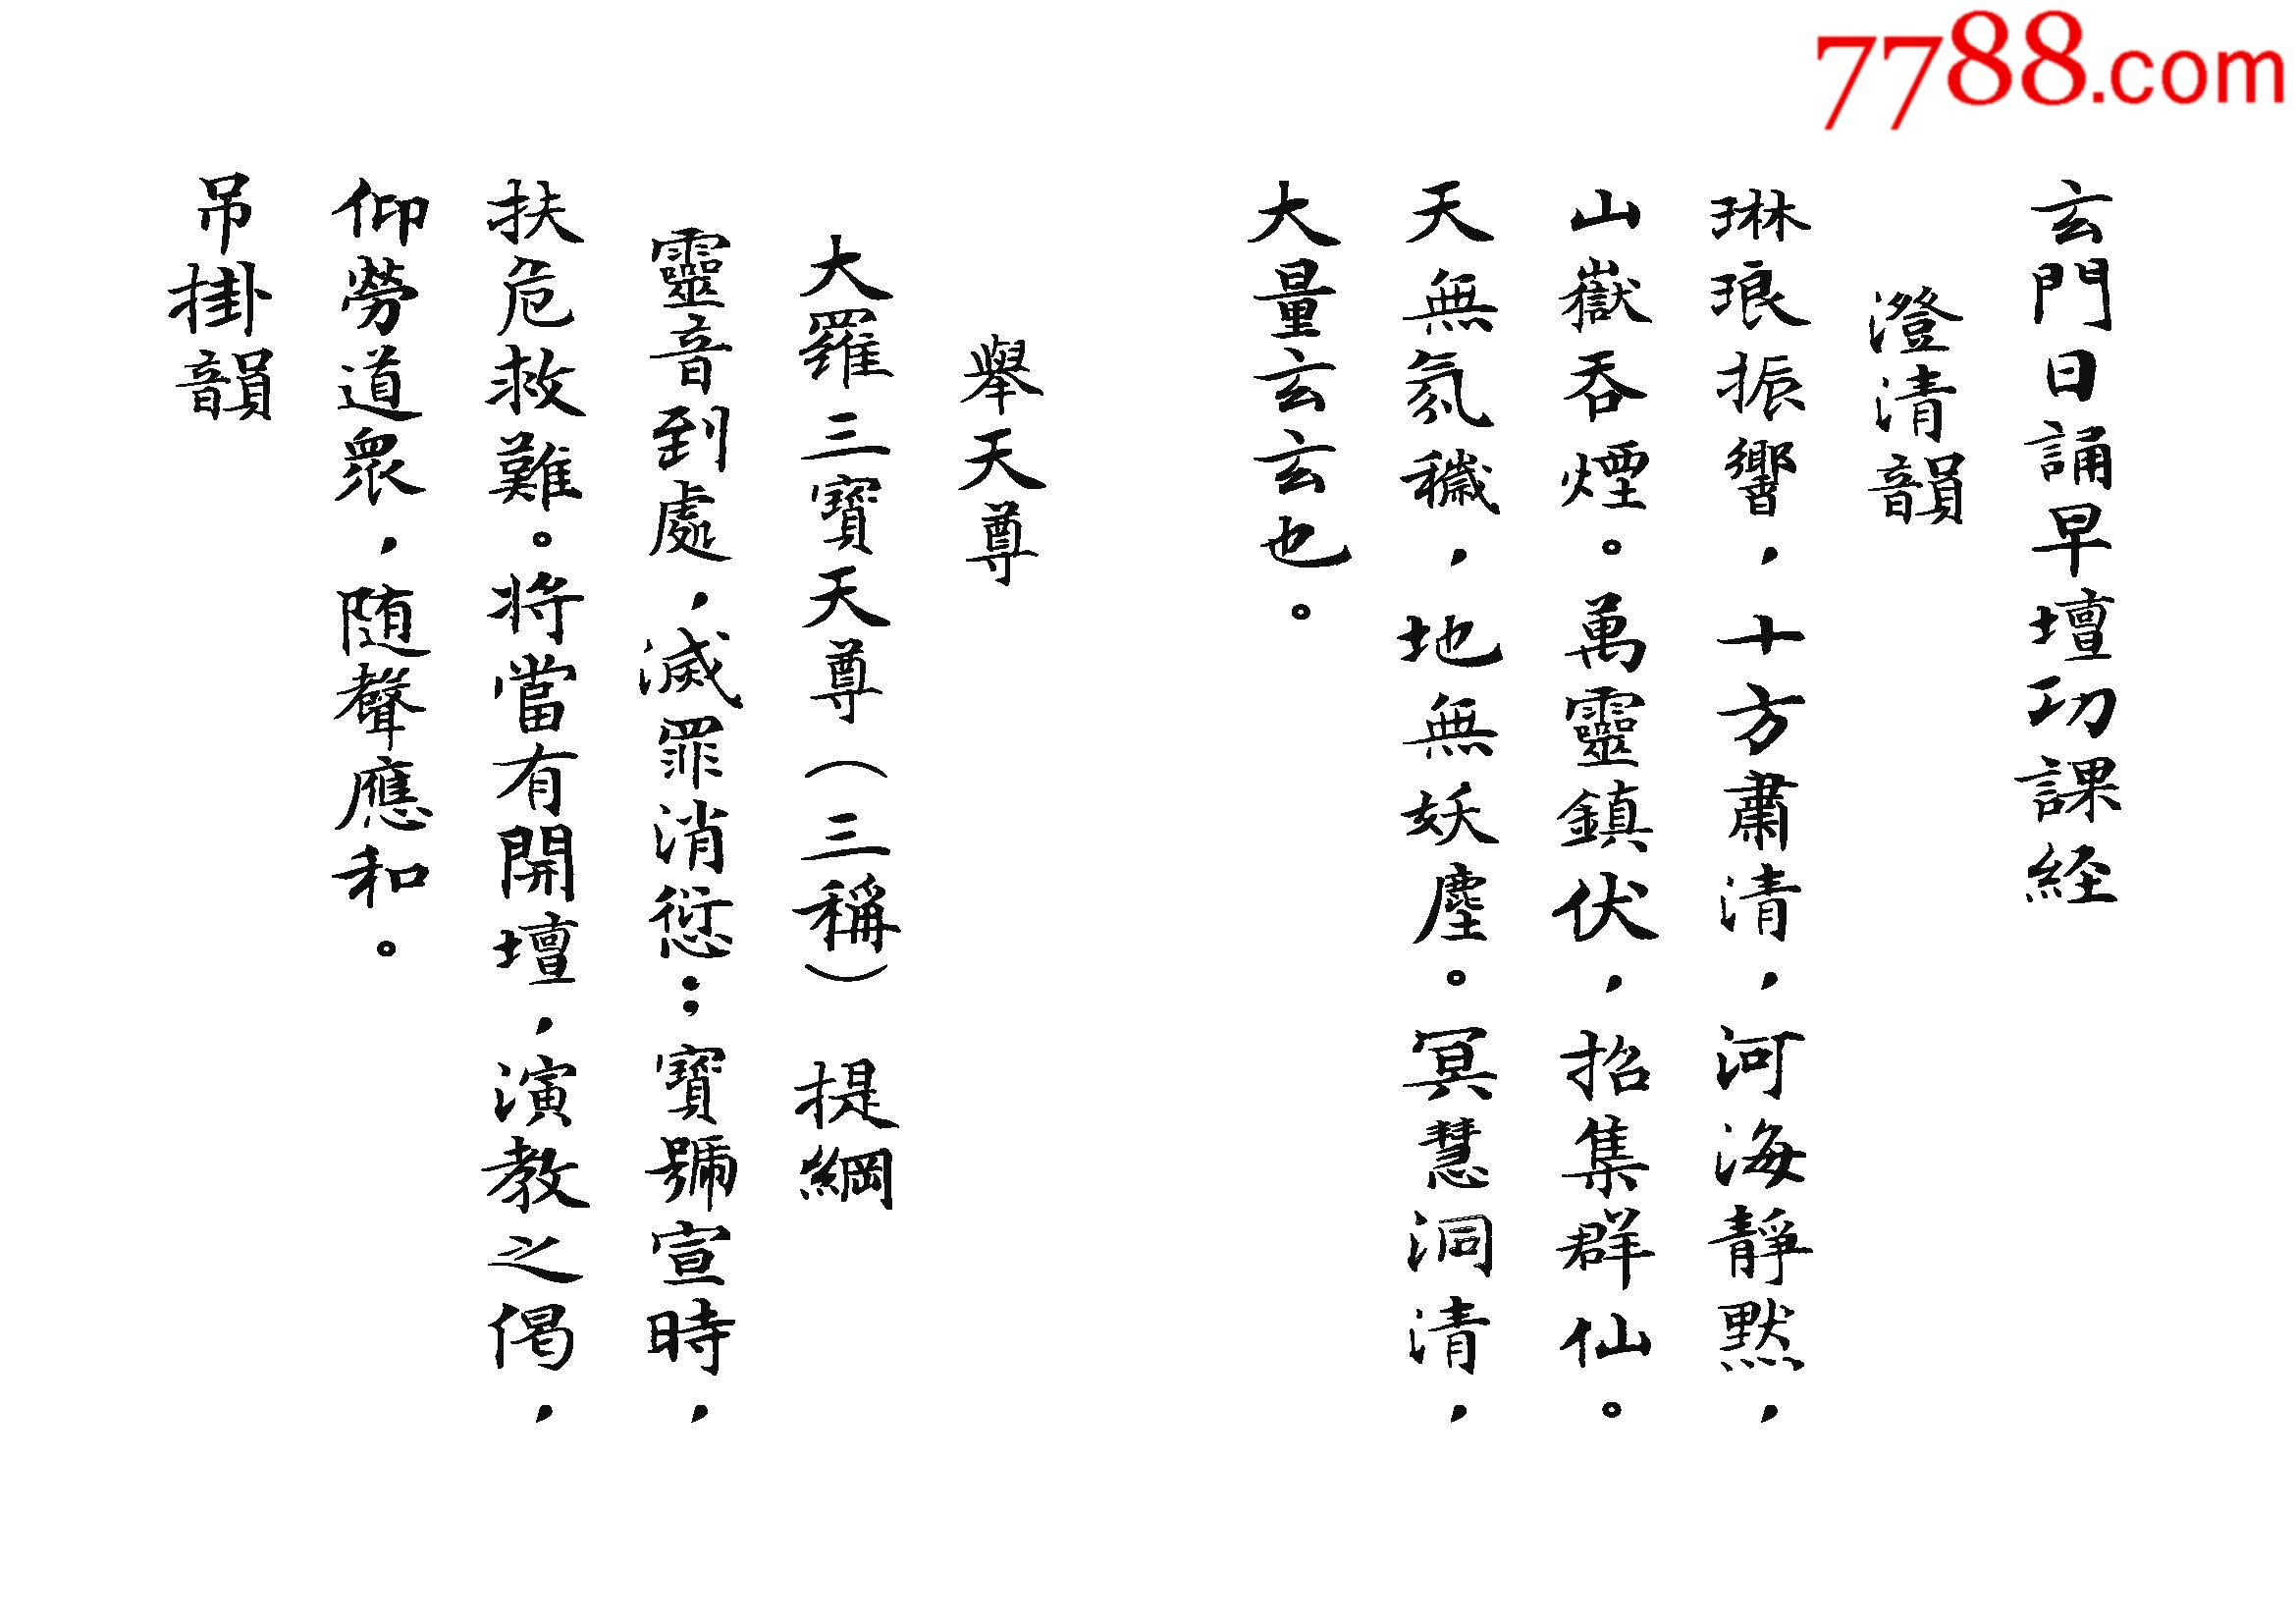 7788.com
玄門日誦早壇功課経
澄清韻
琳琅振響，十方肅清，河海靜默，
山嶽吞煙。萬靈鎮伏，招集群仙。
天無氛穢，地無妖塵。冥慧洞清，
大量玄玄也。
舉天尊
大羅三寶天尊（三稱） 提綱
靈音到處，滅罪消愆；寶號宣時，
扶危救難。将當有開壇，演教之偈，
仰勞道眾，随聲應和。
吊掛韻